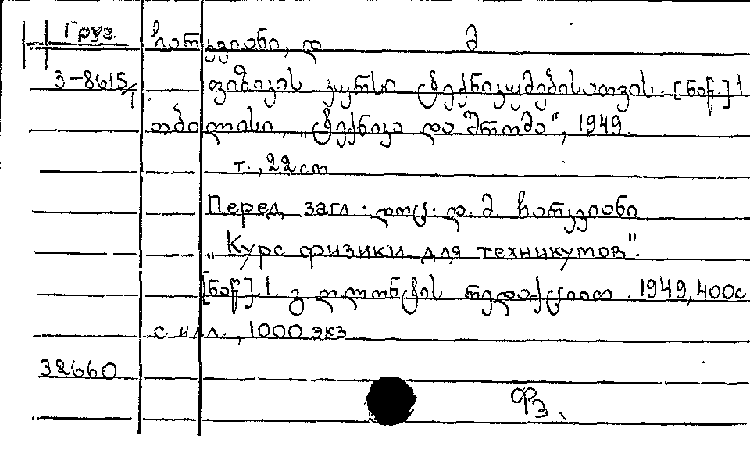 Груз.
ჩარკვიანი, დ მ
3-8615/1 ფიზიკის კურსი ტექნიკუმებისათვის. [ნაწ.] 1
თბილისი, „ტექნიკა და შრომა", 1949.
т., 22 см
Перед загл. დოც. დ. მ. ჩარკვიანი
„Курс физики для техникумов".
[ნაწ.] 1 რედაქციით. 1949, 400с
с илл., 1000 экз
32660
Фз.